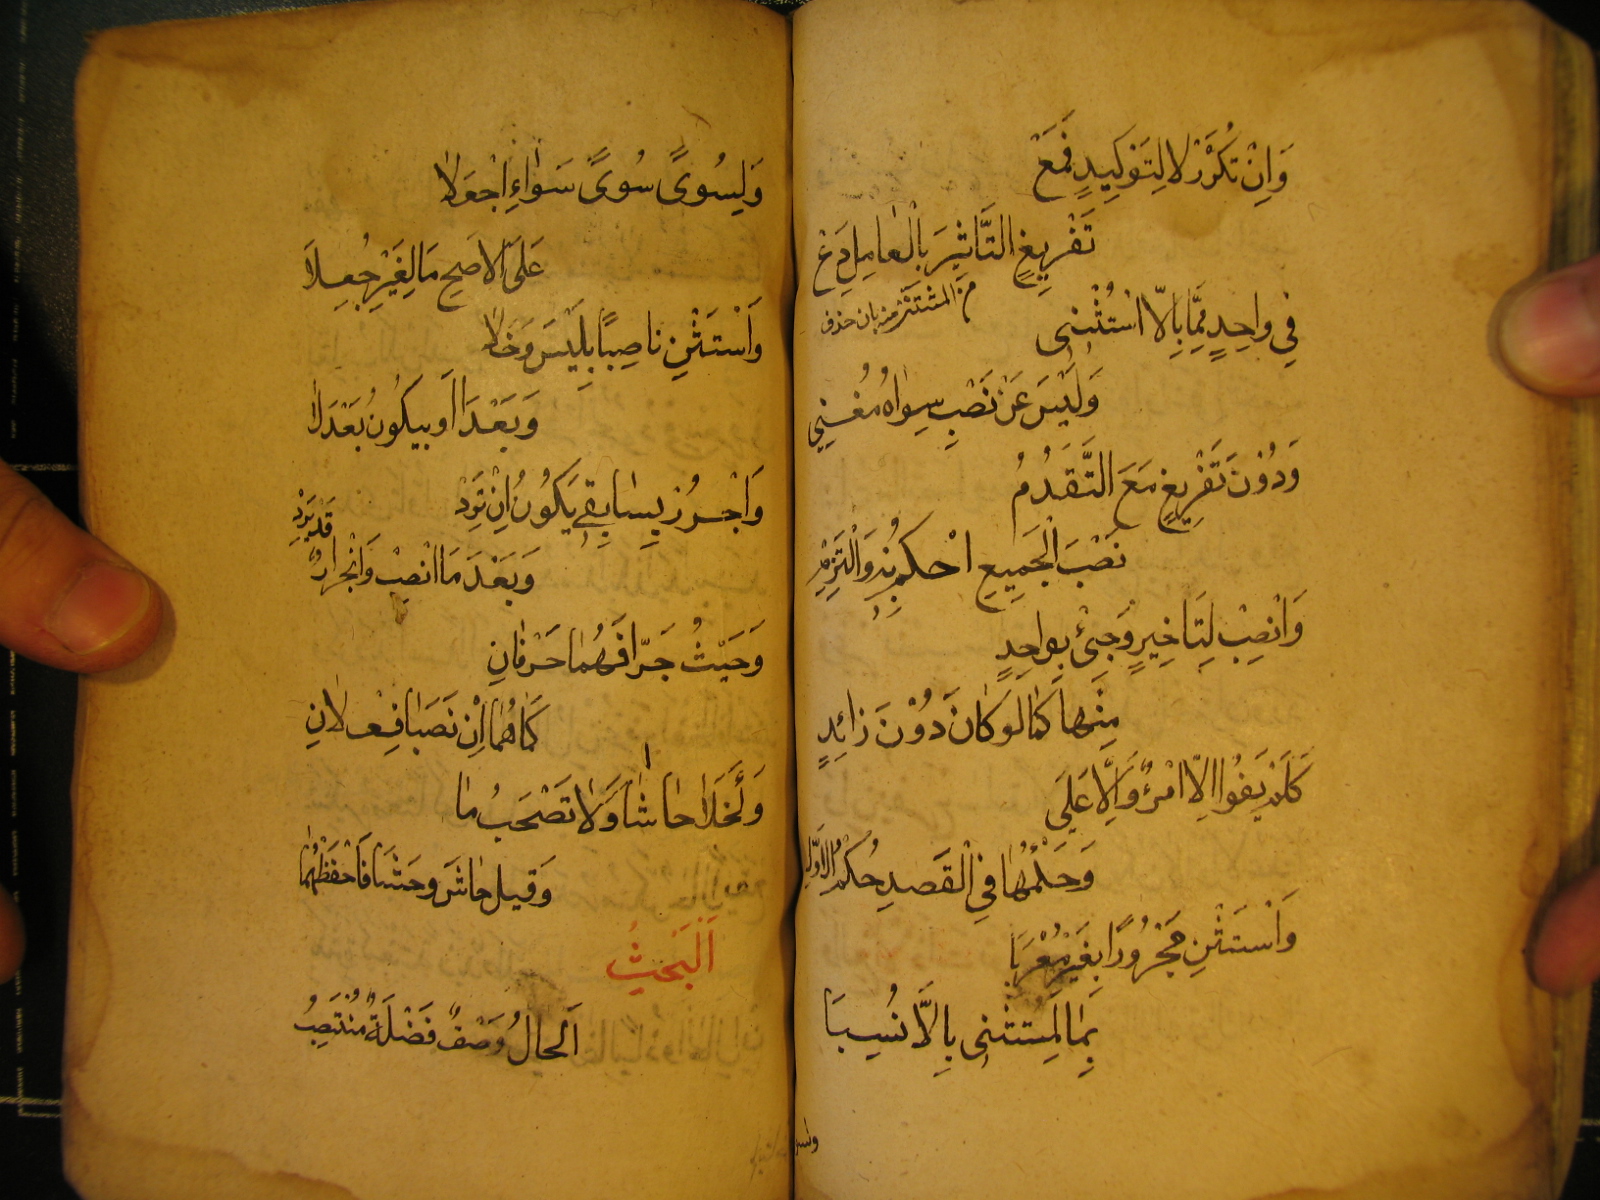 وَاِنْ تُكَرَّرْ لا لِتَوْكِيدٍ فَمَعْ
تَفْرِيغٍ التَّاثِيرَ بِالْعامِلِ دَعْ
فِي واحِدٍ مِمَّا بِاِلّا اسْتُثْنِى
من المستثنى منه بان حذف
وَلَيْسَ عَنْ نَصْبِ سِواهُ مُغْنِي
وَدُوْنَ تَفْرِيغٍ مَعَ التَّقَدُّمُ
نَصْبَ الْجَمِيعِ احْكُمْ بِهِ وَالْتَزِمْ
وَانْصِبْ لِتَاخِيرٍ وَجِئْ بِواحِدٍ
مِنْها كَمالو كانَ دُوْنَ زائِدٍ
كَلَمْ يَفُوا اِلاّ امْرُؤٌ وَاِلَّا عَلَي
وَحُكْمُها فِي الْقَصدِ حُكْمُ الاَوَّلِ
وَاسْتَثْنِ مَجْرُورًا بِغَيْرٍ مُعْرَبَا
بِمَا لِمُسْتَثْنى بِاِلَّا نُسِبَا
ولسو
وَلِسُوىً سُوىً سَواءٍ اجْعَلا
عَلَى الاَصَحِ مَا لِغَيْرٍ جُعِلاَ
وَاسْتَثْنِ ناصِبًا بِلَيْسَ وَخَلا
وَبَعْدَا اَوبيكُونُ بَعْدَلا
وَاجْرُرْ بِسابِقَي يَكُونُ اِنْ تَرَدْ
وَبَعْدَ مَا انْصِبْ وَانْجِرارٌ
قَدْ يَرِدْ
وَحَيْثُ جَرّا فَهُمَا حَرْفانِ
كَمَا هُمَا اِنْ نَصَبَا فِعْلانِ
وَكَخَلَا حَاشَا وَلا تَصْحَبُ مَا
وَقِيلَ حاشَ وَحَشَا فَاحْفَظْهُمَا
اَلْبَحْثُ
اَلحالُ وَصْفٌ فَضْلَةٌ مُنْتَصِبُ